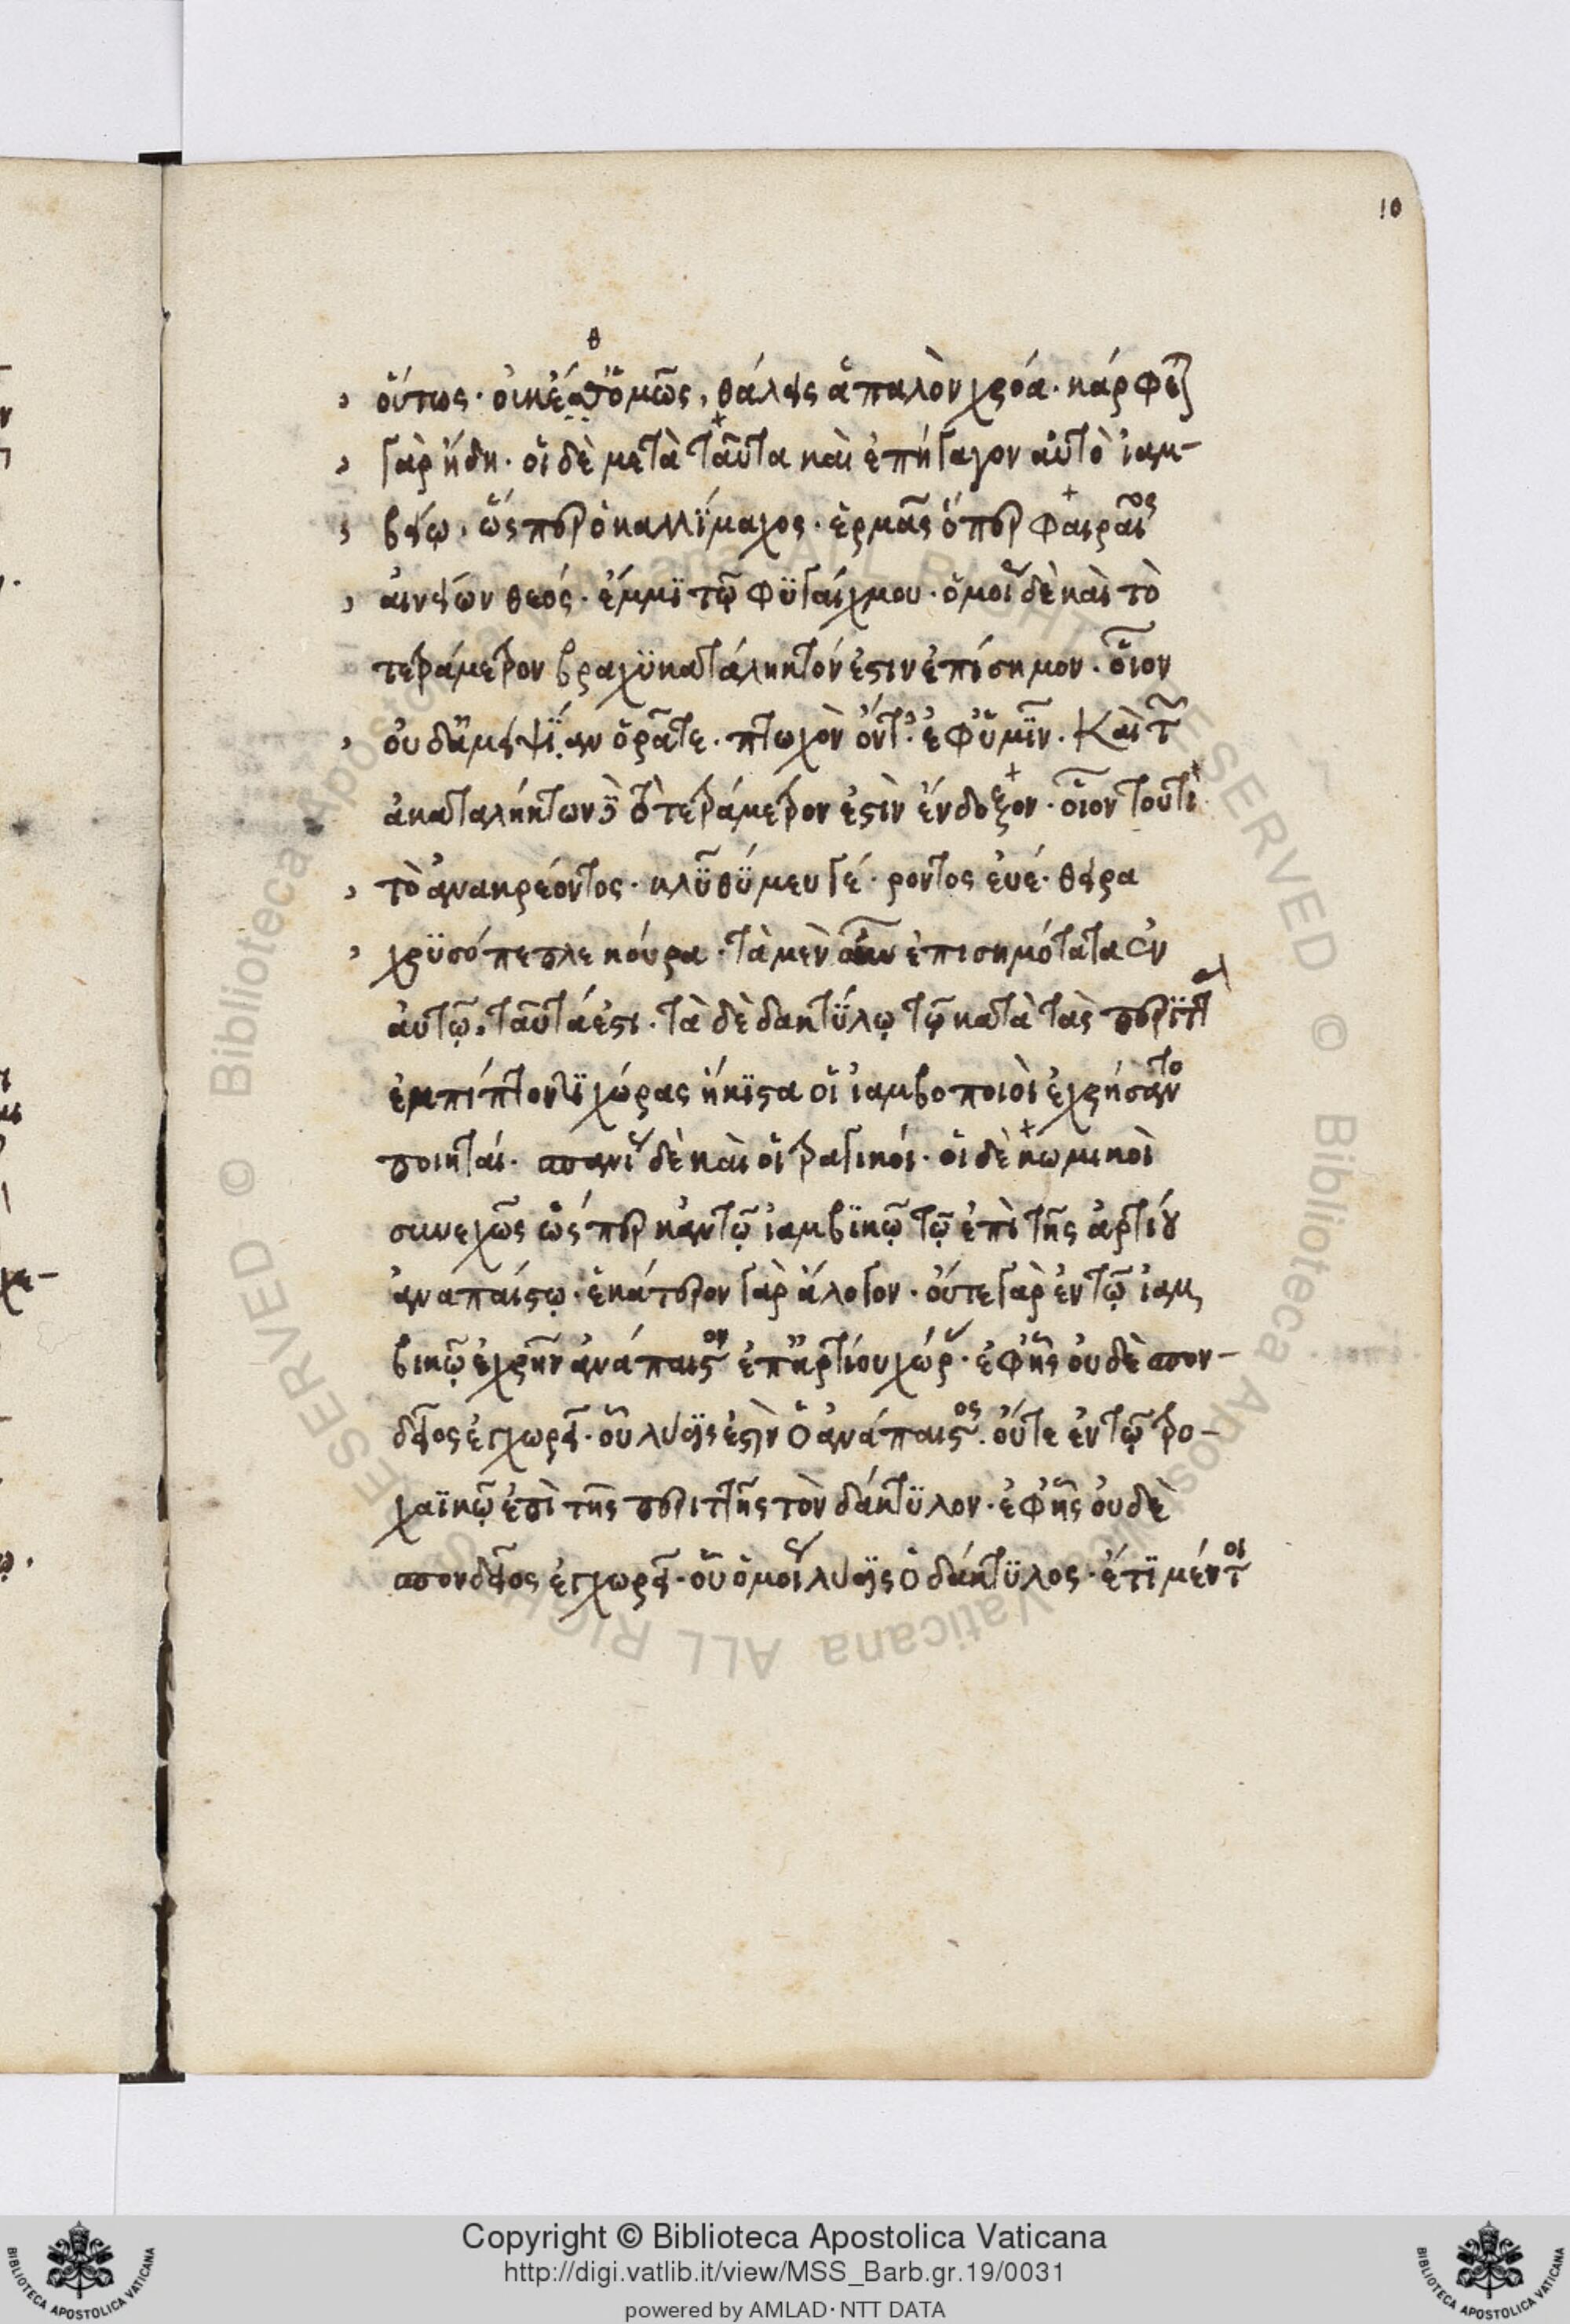 10
οὕτως· οὐκέθ' ὁμῶς, θάλεις ἁπαλὸν χρόα· κάρφεται
γὰρ ἤδη· οἱ δὲ μετὰ ταῦτα καὶ ἐπήγαγον αὐτὸ ἰαμ-
βείῳ, ὥσπερ ὁ καλλίμαχος· ἑρμᾶς ὅπερ φαιραῖος
αἰνείων θεός· ἔμμι τῷ φυγαίχμου· ὁμοῦ δὲ καὶ τὸ
τετράμετρον βραχυκατάληκτόν ἐστιν ἐπίσημον· οἷον
οὐδ' ἀμειψίαν ὁρᾶτε· πτωχὸν ὄντ' ἐφ' ὑμῖν· Καὶ τῶν
ἀκαταλήκτων δὲ τὸ τετράμετρον ἐστὶν ἔνδοξον· οἷον τουτὶ
τὸ ἀνακρέοντος· κλῦθύ μευ γέ· ροντος εὐέ· θειρα
χρυσόπεπλε κούρα· τὰ μὲν οὖν ἐπισημότατα ἐν
αὐτῷ, ταῦτά ἐστι· τὰ δὲ δακτύλῳ τῷ κατὰ τὰς περιττὰς
ἐμπίπτοντι χώρας ἥκιστα οἱ ἰαμβοποιοὶ ἐχρήσαντο
ποιηταί· σπανίως δὲ καὶ οἱ τραγικοί· οἱ δὲ κωμικοὶ
συνεχῶς ὥσπερ κἀν τῷ ἰαμβικῷ τῷ ἐπὶ τῆς ἀρτίου
ἀναπαίστῳ· ἑκάτερον γὰρ ἄλογον· οὔτε γὰρ ἐν τῷ ἰαμ
βικῷ ἐχρῆν ἀνάπαιστον ἐπ' ἀρτίου χώρας· ἐφ' ἧς οὐδὲ σπον-
δεῖος ἐγχωρεῖ· οὗ λύσις ἐστὶν ὁ ἀνάπαιστος· οὔτε ἐν τῷ τρο-
χαϊκῷ ἐπὶ τῆς περιττῆς τὸν δάκτυλον· ἐφ' ἧς οὐδὲ
σπονδεῖος ἐγχωρεῖ· οὗ ὁμοίως λύσις ὁ δάκτυλος· ἔτι μέντοι
Copyright © Biblioteca Apostolica Vaticana
http://digi.vatlib.it/view/MSS_Barb.gr.19/0031
powered by AMLAD·NTT DATA